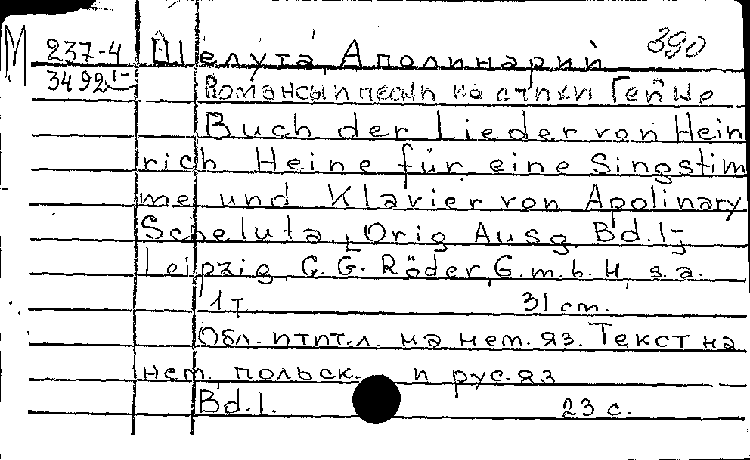 М 237-4 Шелута, Аполинарий 390
34921- Романсы и песни на стихи Гейне
Buch der Lieder von Hein
rich Heine für eine Singstim
me und Klavier von Apolinary
Scheluta, Orig. Ausg. Bd. 1-
Leipzig, C. G. Röder, G.m.b.H, s.a.
1 т. 31 cm.
Обл. и тит. л. на нем. яз. Текст на
нем., польск. и рус. яз
Bd. 1. 23 с.